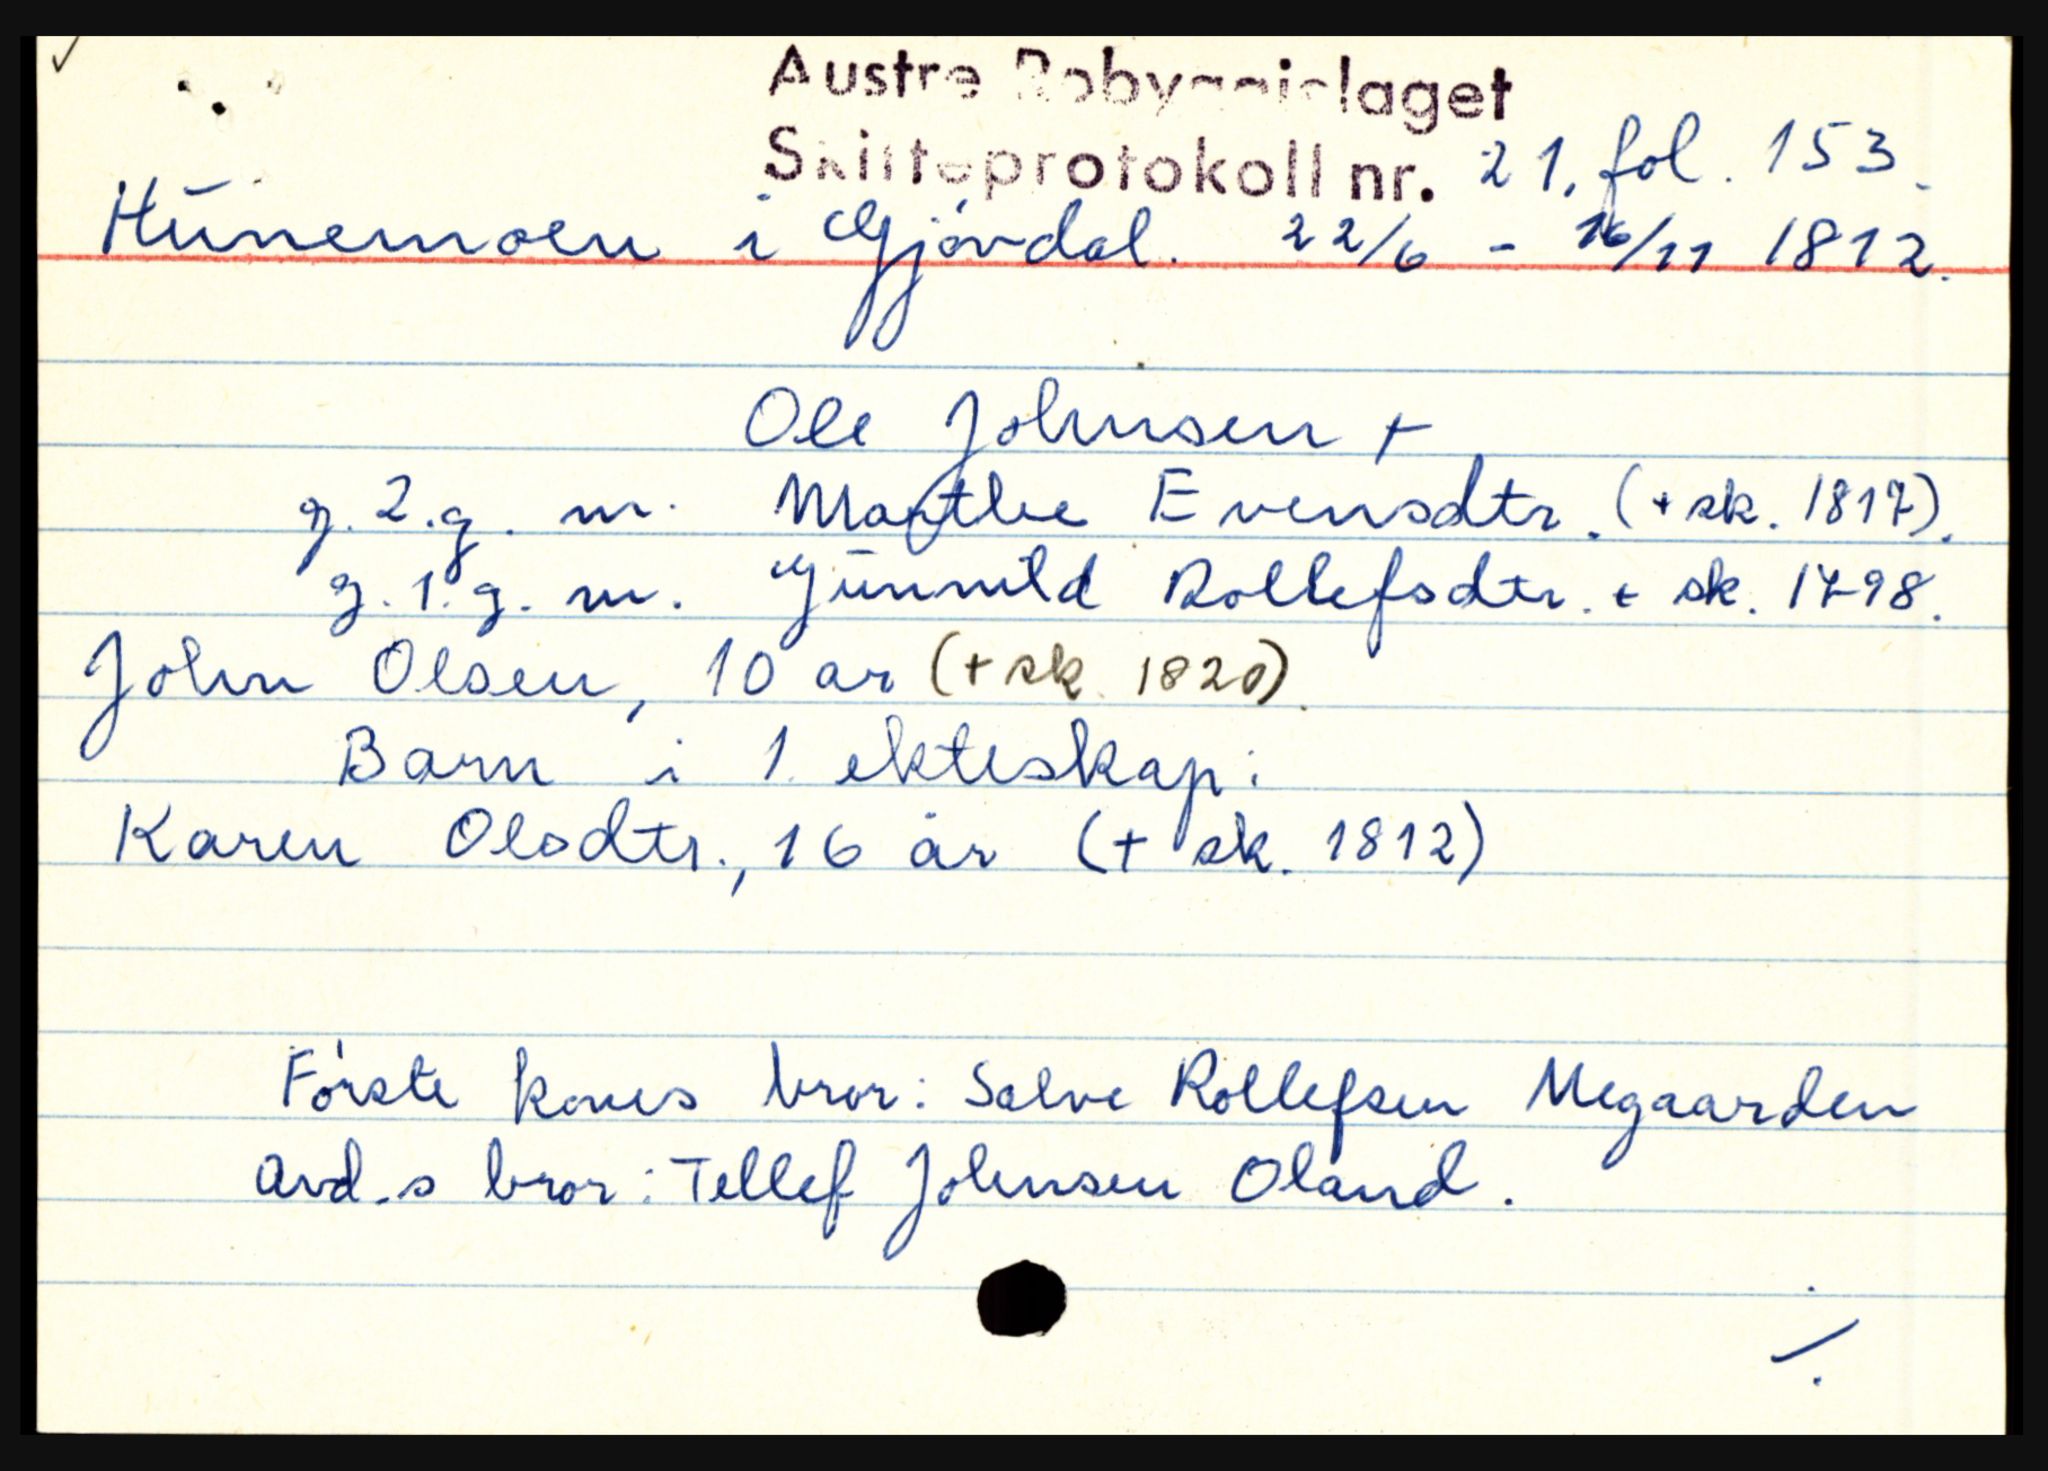 Austre Robyggjelaget
Skifteprotokoll nr. 21, fol. 153.
Hunemoen i Gjövdal. 22/6 - 16/11 1812.
Ole Johnsen +
g. 2. g. m. Marthe Evensdtr. (+ sk. 1817).
g. 1. g. m. Gunnild Rollefsdtr. + sk. 1798.
John Olsen, 10 år (+ sk. 1820).
Barn i 1. ekteskap:
Karen Olsdtr., 16 år (+ sk. 1812)
Förste kones bror: Salve Rollefsen Megaarden
Avd.s bror: Tellef Johnsen Oland.